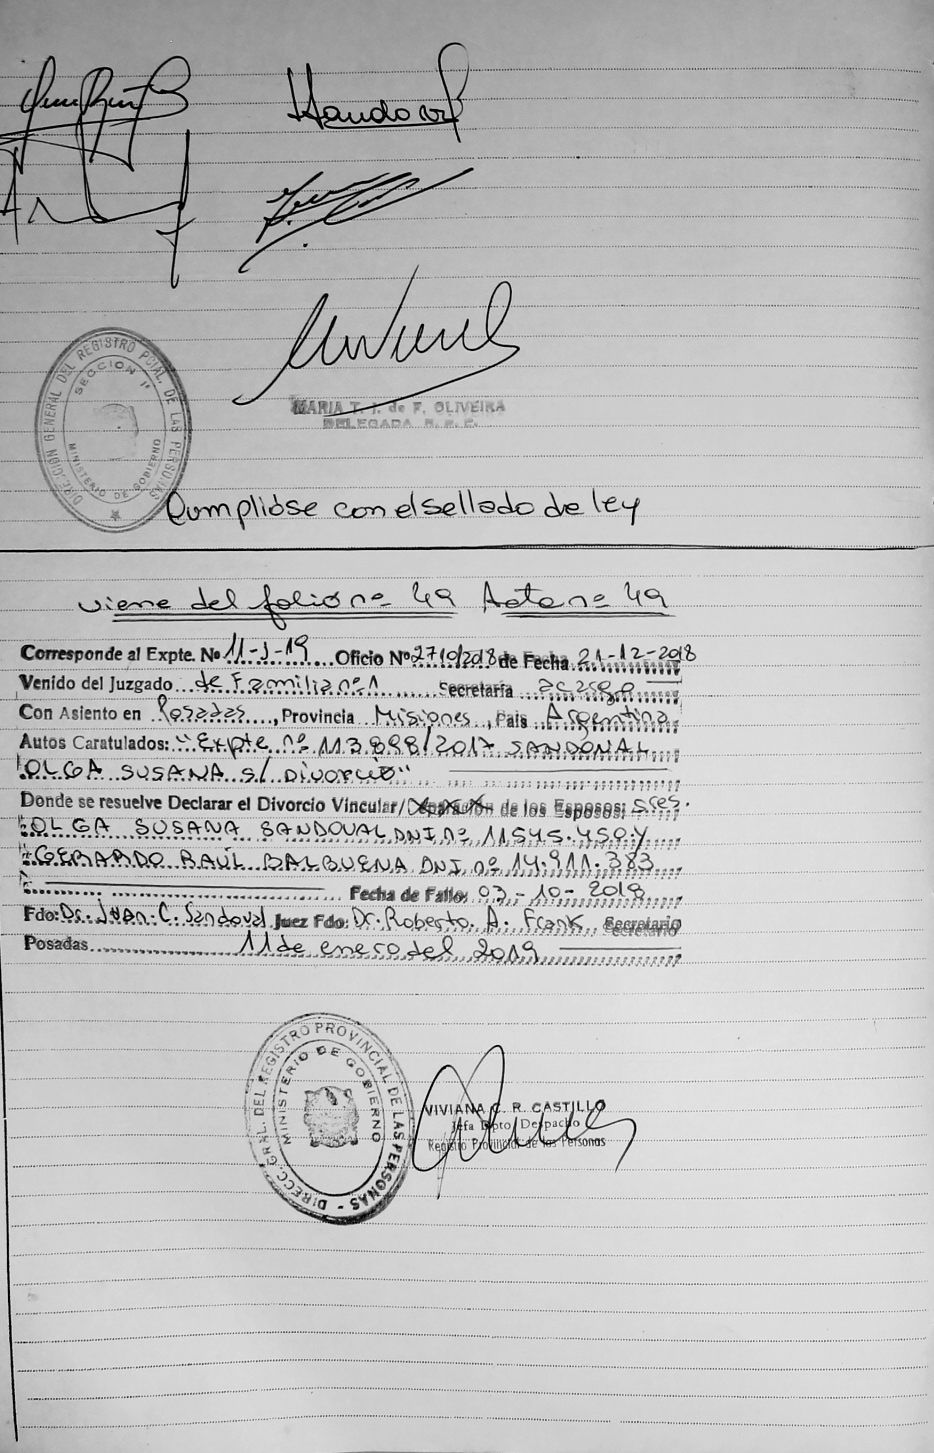 MARIA T. I. de F. OLIVEIRA
DELEGADA R. P. C.
DIRECCION GENERAL DEL REGISTRO PCIAL. DE LAS PERSONAS
SECCION 1ª
MINISTERIO DE GOBIERNO
Cumplióse con el sellado de ley
viene del folio nº 49 Acta nº 49
Corresponde al Expte. Nº 11-J-19 Oficio Nº 2710/2018 de Fecha 21-12-2018
Venido del Juzgado de Familia nº 1 Secretaría a cargo
Con Asiento en Posadas, Provincia Misiones, Pais Argentina
Autos Caratulados: "Expte nº 113.898/2017 SANDONAL
OLGA SUSANA S/ Divorcio"
Donde se resuelve Declarar el Divorcio Vincular/Separación de los Esposos: sres.
OLGA SUSANA SANDOVAL DNI nº 11545.450.y
GERARDO RAÚL BALBUENA DNI nº 14.911.383
Fecha de Fallo: 03-10-2018
Fdo: Dr. Juan C. Sandoval Juez Fdo: Dr. Roberto A. Frank Secretario
Posadas 11 de enero del 2019
DIRECC. GRAL. DEL REGISTRO PROVINCIAL DE LAS PERSONAS
MINISTERIO DE GOBIERNO
VIVIANA C. R. CASTILLO
Jefa Dpto Despacho
Registro Provincial de las Personas